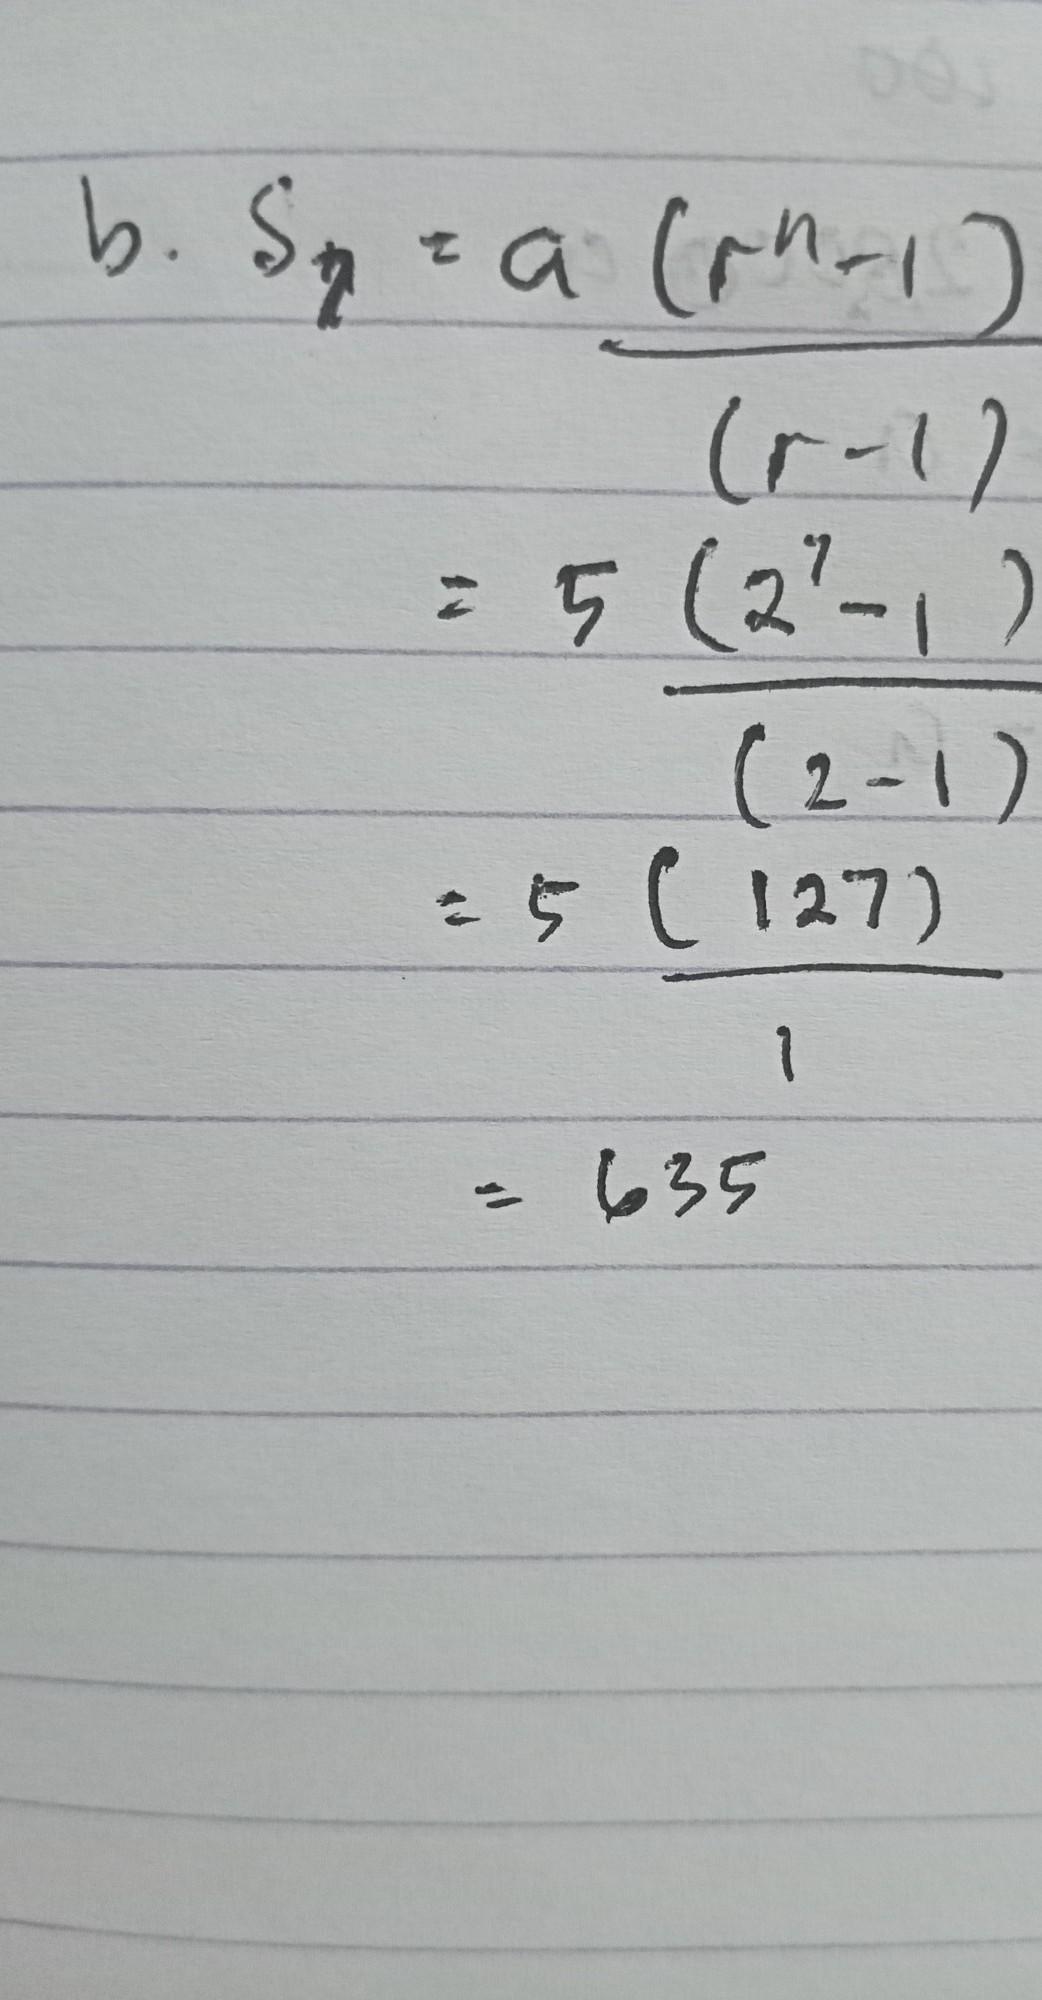 b. S₇ = a (rⁿ-1)
(r-1)
= 5 (2⁷-1)
(2-1)
= 5 (127)
1
= 635